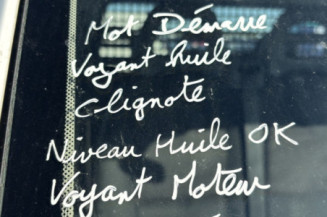 Mot Démarre
Voyant huile
Clignote
Niveau Huile OK
Voyant Moteur